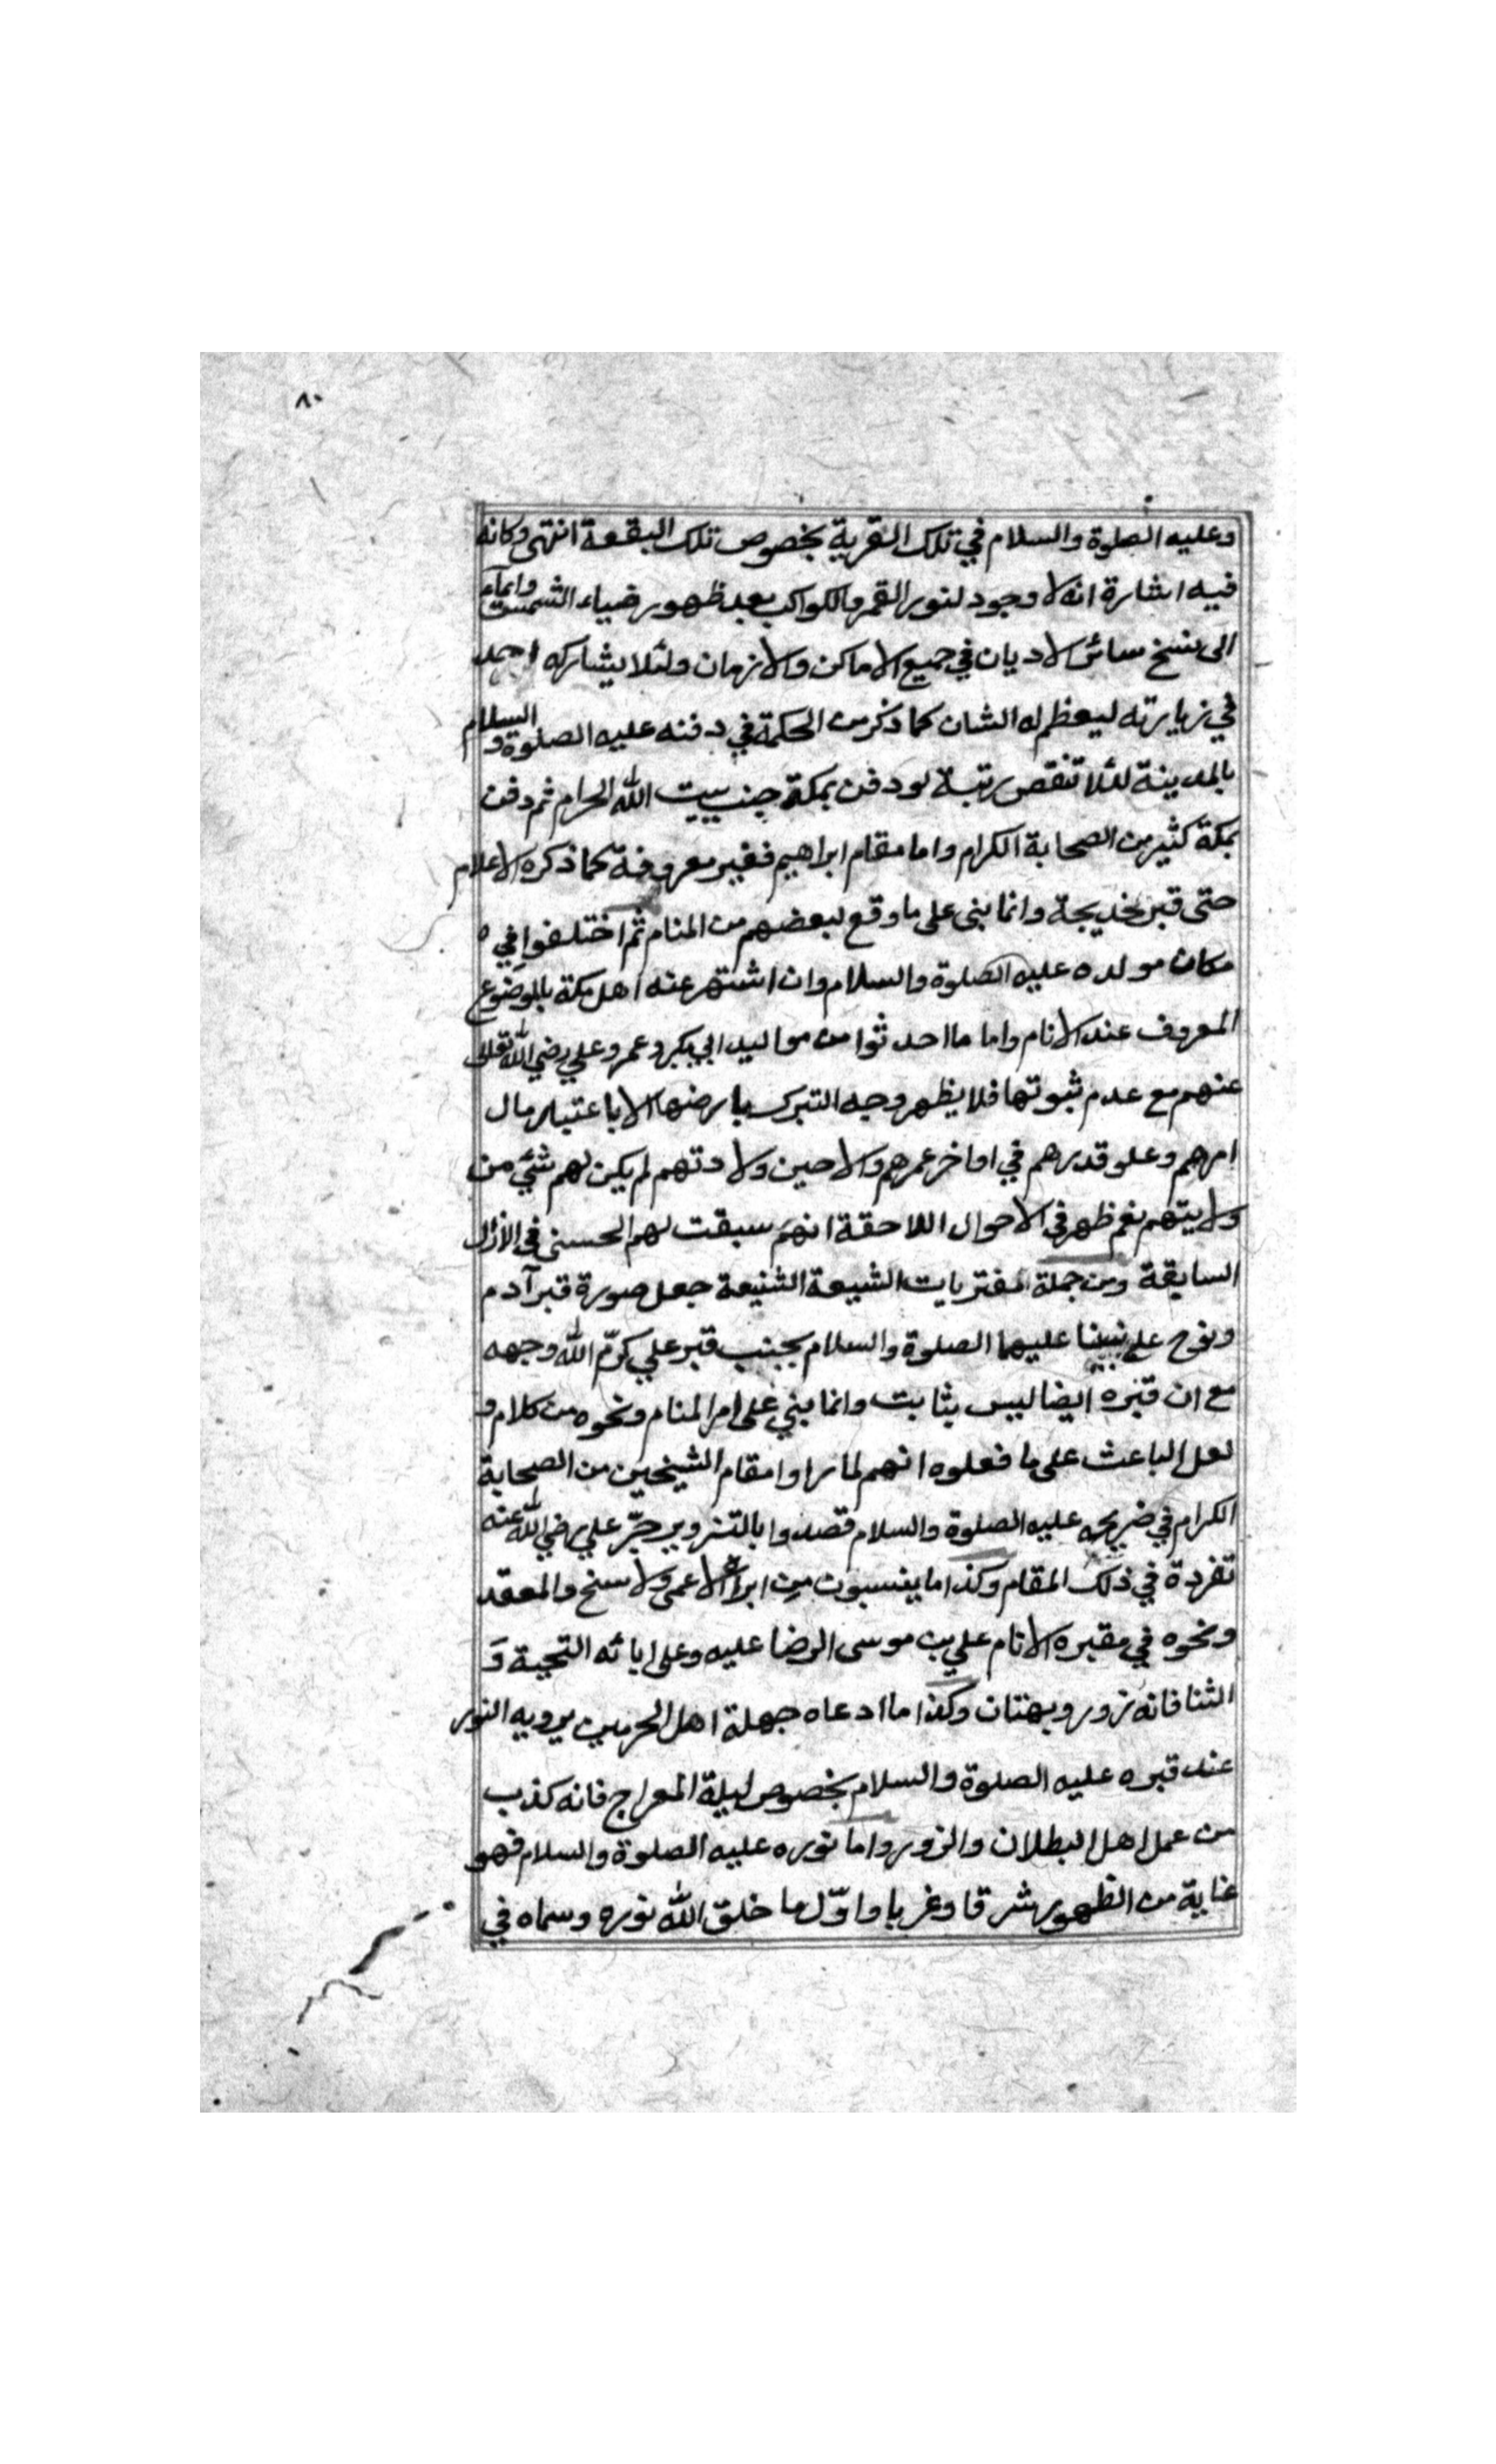 ٨٠
وعليه الصلوة والسلام في تلك القرية بخصوص تلك البقعة انتهى وكانه
فيه اشارة انه لا وجود لنور القمر والكواكب بعد ظهور ضياء الشمس وايماء
الى نسخ سائر الاديان في جميع الاماكن والازمان ولئلا يشاركه احد
في زيارته ليعظم له الشان كما ذكر من الحكمة في دفنه عليه الصلوة والسلام
بالمدينة لئلا تنقص رتبة لو دفن بمكة جنب بيت الله الحرام ثم دفن
بمكة كثير من الصحابة الكرام واما مقام ابراهيم فغير معروفة كما ذكره الاعلام
حتى قبر خديجة وانما بنى على ما وقع لبعضهم من المنام ثم اختلفوا في
مكان مولده عليه الصلوة والسلام وان اشتهر عنه اهل مكة بالموضوع
المعروف عند الانام واما ما احدثوا من مواليد ابي بكر وعمر وعلي رضي الله تعالى
عنهم مع عدم ثبوتها فلا يظهر وجه التبرك بارضها الا باعتبار مال
امرهم وعلو قدرهم في اواخر عمرهم والا حين ولادتهم لم يكن لهم شيء من
ولايتهم نعم ظهر في الاحوال اللاحقة انهم سبقت لهم الحسنى في الازل
السابقة ومن جملة المفتريات الشيعة الشنيعة جعل صورة قبر آدم
ونوح على نبينا عليهما الصلوة والسلام بجنب قبر علي كرّم الله وجهه
مع ان قبره ايضا ليس بثابت وانما بني على امر المنام ونحوه من كلام و
لعل الباعث على ما فعلوه انهم لما راوا مقام الشيخين من الصحابة
الكرام في ضريحه عليه الصلوة والسلام قصدوا بالتزوير جبّر علي رضي الله عنه
تفردة في ذلك المقام وكذا ما ينسبون من ابراء الاعمى والاسنخ والمعقد
ونحوه في مقبره الانام علي بن موسى الرضا عليه وعلى ابائه التحية و
الثنا فانه زور وبهتان وكذا ما ادعاه جهلة اهل الحرمين برويه النور
عند قبره عليه الصلوة والسلام بخصوص ليلة المعراج فانه كذب
من عمل اهل البطلان والزور واما نوره عليه الصلوة والسلام فهو
غاية من الظهور شرقا وغربا واوّل ما خلق الله نوره وسماه في